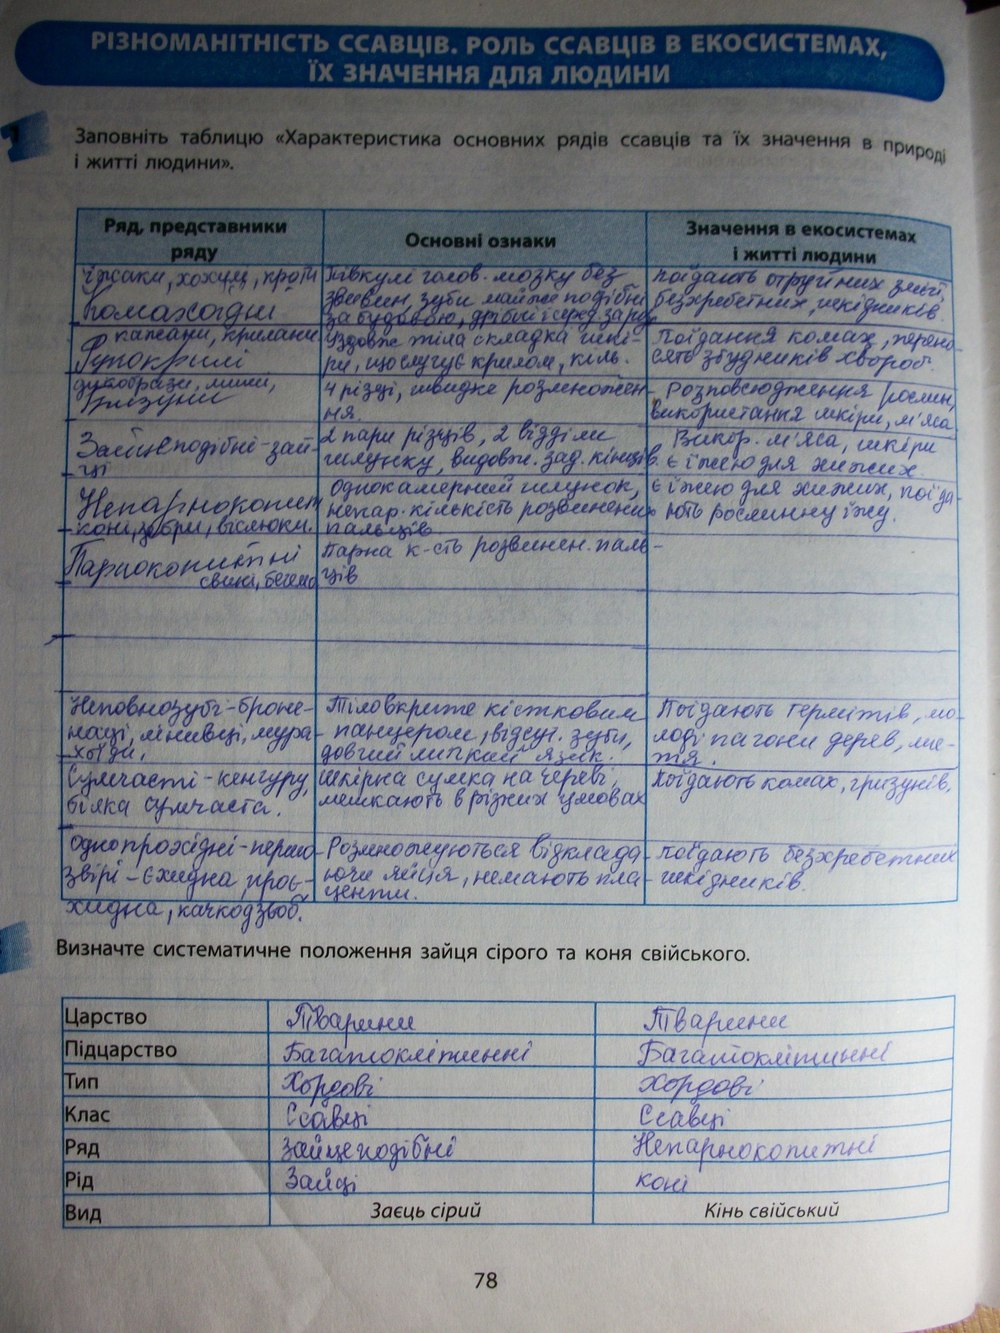 РІЗНОМАНІТНІСТЬ ССАВЦІВ. РОЛЬ ССАВЦІВ В ЕКОСИСТЕМАХ,
ЇХ ЗНАЧЕННЯ ДЛЯ ЛЮДИНИ
1
Заповніть таблицю «Характеристика основних рядів ссавців та їх значення в природі
і житті людини».
Ряд, представники
ряду
Основні ознаки
Значення в екосистемах
і житті людини
їжаки, хохулі, кроти
Комахоїдні
Півкулі голов. мозку без
звивин, зуби майже подібні
за будовою, дрібні і серед.
поїдають отруйних змій,
безхребетних, шкідників.
кажани, крилани
Рукокрилі
Уздовж тіла складка шкі-
ри, що слугує крилом, кіль.
Поїдання комах, перено-
сять збудників хвороб.
дикобрази, миші,
Гризуни
4 різці, швидке розмножен-
ня.
Розповсюдження рослин,
використання шкіри, м'яса
Зайцеподібні-зай-
ці
2 пари різців, 2 відділи
шлунку, видовж. зад. кінців.
Викор. м'яса, шкіри
є їжею для хижих.
Непарнокопит
коні, зебри, віслюки.
Однокамерний шлунок,
непар. кількість розвинених
пальців
є їжею для хижих, поїда-
ють рослинну їжу.
Парнокопитні
свині, бегемо
Парна к-сть розвинен. паль-
ців
Неповнозубі-броне-
носці, лінивці, мура-
хоїди.
Тіло вкрите кістковим
панцером, відсут. зуби,
довгий липкий язик.
Поїдають термітів, мо-
лоді пагони дерев, лис-
тя.
Сумчасті-кенгуру,
білка сумчаста.
шкірна сумка на череві,
мешкають в різних умовах
Поїдають комах, гризунів.
Однопрохідні-першо-
звірі-єхидна, прое-
хидна, качкодзьоб.
Розмножуються відклада-
ючи яйця, немають пла-
центи.
Поїдають безхребетних
шкідників.
Визначте систематичне положення зайця сірого та коня свійського.
Царство Тварини Тварини
Підцарство Багатоклітинні Багатоклітинні
Тип Хордові Хордові
Клас Ссавці Ссавці
Ряд Зайцеподібні Непарнокопитні
Рід Зайці коні
Вид Заєць сірий Кінь свійський
78